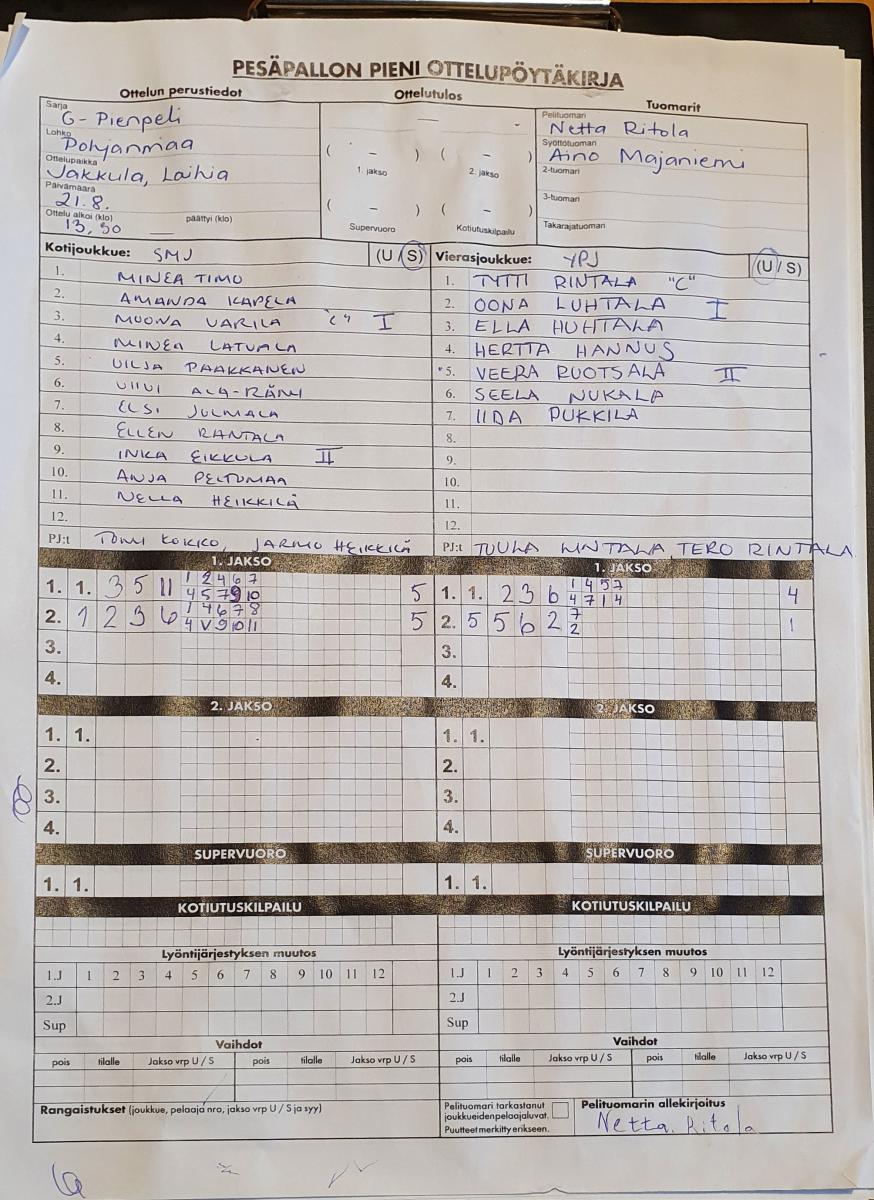 PESÄPALLON PIENI OTTELUPÖYTÄKIRJA
Ottelun perustiedot Ottelutulos Tuomarit
Sarja
G-Pienpeli
Lohko
Pohjanmaa
Ottelupaikka
Jakkula, Laihia
Päivämäärä
21.8.
Ottelu alkoi (klo) päättyi (klo)
13,30
( – ) ( – )
1. jakso 2. jakso
( – ) ( – )
Supervuoro Kotiutuskilpailu
Pelituomari
Netta Ritola
Syöttötuomari
Aino Majaniemi
2-tuomari
3-tuomari
Takarajatuomari
Kotijoukkue: SMJ (U / S)
1. MINEA TIMO
2. AMANDA KAPELA
3. MOONA VARILA "C" I
4. MINEA LATVALA
5. VILJA PAAKKANEN
6. VIIVI ALA-RÄMI
7. ELSI JULMALA
8. ELLEN RANTALA
9. INKA EIKKULA II
10. ANJA PELTOMAA
11. NELLA HEIKKILÄ
12.
PJ:t TOMI KOKKO, JARMO HEIKKILÄ
Vierasjoukkue: YPJ (U / S)
1. TYTTI RINTALA "C"
2. OONA LUHTALA I
3. ELLA HUHTALA
4. HERTTA HANNUS
5. VEERA RUOTSALA II
6. SEELA NUKALA
7. IIDA PUKKILA
8.
9.
10.
11.
12.
PJ:t TUULA LINTALA, TERO RINTALA
1. JAKSO 1. JAKSO
1. 1. 3 5 11 1 2 4 6 7 5 1. 1. 2 3 6 1 4 5 7 4
4 5 7 9 10 4 7 1 4
2. 1 2 3 6 1 4 6 7 8 5 2. 5 5 6 2 7 1
4 V 9 10 11 2
3. 3.
4. 4.
2. JAKSO 2. JAKSO
1. 1. 1. 1.
2. 2.
3. 3.
4. 4.
SUPERVUORO SUPERVUORO
1. 1. 1. 1.
KOTIUTUSKILPAILU KOTIUTUSKILPAILU
Lyöntijärjestyksen muutos Lyöntijärjestyksen muutos
1.J 1 2 3 4 5 6 7 8 9 10 11 12 1.J 1 2 3 4 5 6 7 8 9 10 11 12
2.J 2.J
Sup Sup
Vaihdot Vaihdot
pois tilalle Jakso vrp U / S pois tilalle Jakso vrp U / S pois tilalle Jakso vrp U / S pois tilalle Jakso vrp U / S
Rangaistukset (joukkue, pelaaja nro, jakso vrp U / S ja syy)
Pelituomari tarkastanut
joukkueiden pelaajaluvat.
Puutteet merkitty erikseen.
Pelituomarin allekirjoitus
Netta Ritola